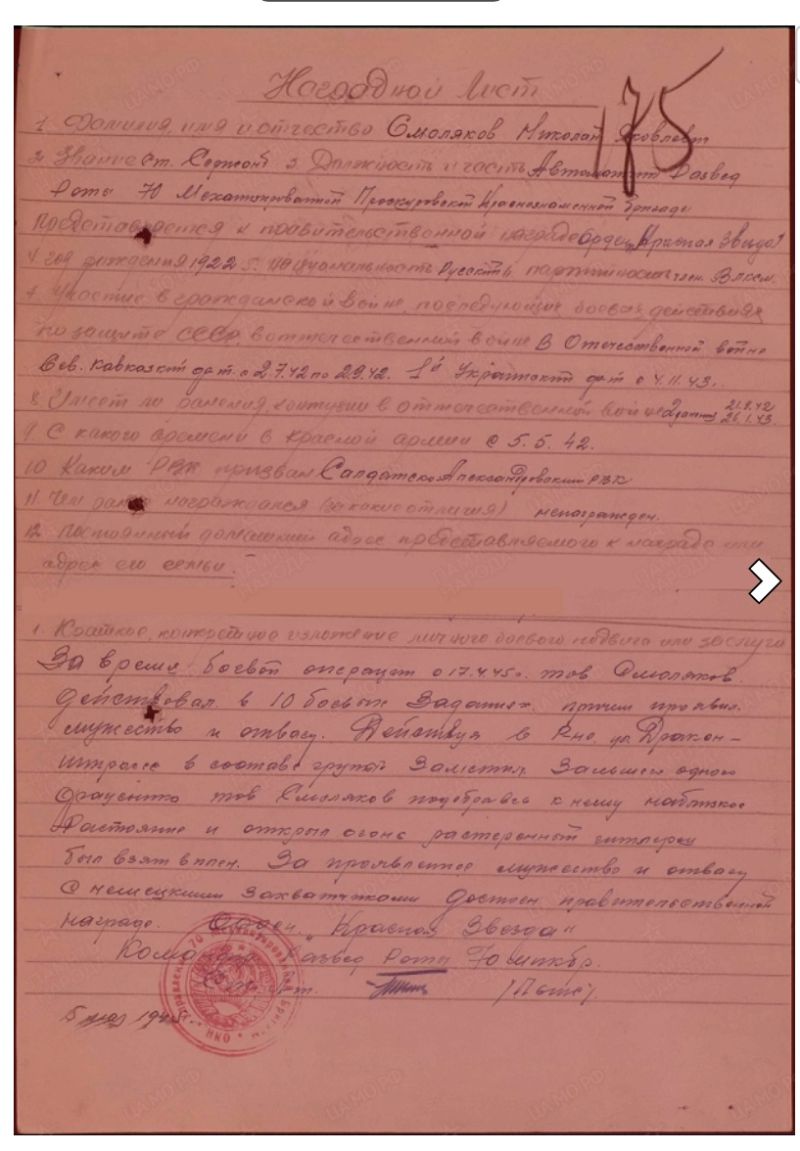 Наградной Лист
175
1 Фамилия, имя и отчество Смоляков Николай Яковлевич
2 Звание Ст. Сержант 3 Должность и часть Автоматчик Развед
Роты 70 Механизированной Проскуровской Краснознаменной Бригады
Представляется к правительственной награде Орден „Красная Звезда"
4 год рождения 1922 г. национальность Русский партийность член Влксм.
7 Участие в гражданской войне, последующие боевая действиях
по защите СССР в оттечественной войне В Отечественной войне
Сев. Кавказкий фр-т. с 2.7.42 по 2.9.42. 1й Украінский фр-т с 4.11.43.
8 Имеет ли ранения, контузии в оттечественной войне 21.9.42
26.1.43.
9 С какого времени в красной армии с 5.5.42.
10 Каким РВК призван РВК
11 Чем ранее награждался (за какие отличия) ненагражден.
12 Постоянный домашний адрес представляемого к награде или
адрес его семьи.
1. Краткое, конкретное изложение личного боевого подвига или заслуги
За время боевой операций с 17.4.45г. тов Смоляков.
Действовал в 10 боевых Заданиях. причем проявил.
мужество и отвагу. Действуя в Р-не ул. Дракон-
штрассе в составе групой Заметил. одного
тов Смоляков подобрався к нему наблизкое
Растояние и открыл огонь растеренный
был взят в плен. За проявленное мужество и отвагу
С немецкими Захватчиками Достоен правительственной
награде. Орден. „Красная Звезда"
Командир Развед Роты 70 мехбр.
5 мая 1945г.